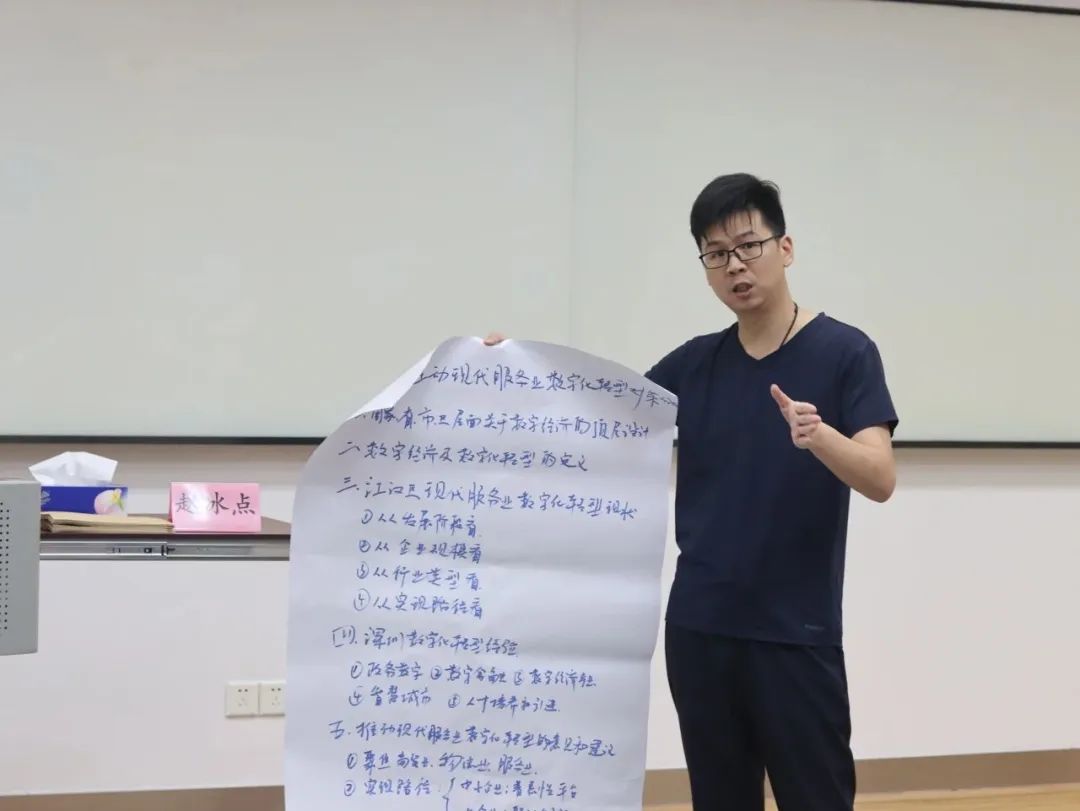 动现代服务业数字化转型对策
国家、省、市、区层面关于数字经济的顶层设计
二、数字经济及数字化转型的定义
三、江汉区现代服务业数字化转型现状
①从发展阶段看
②从企业规模看
③从行业类型看
④从实现路径看
四、深圳数字化转型经验
①政务数字 ②数字金融 ③数字经济
④智慧城市 ⑤人才培养和引进
五、推动现代服务业数字化转型的意见和建议
①聚焦商贸业、物流业、服务业
②实现路径: 中小企业:普惠性平台
赵冰点